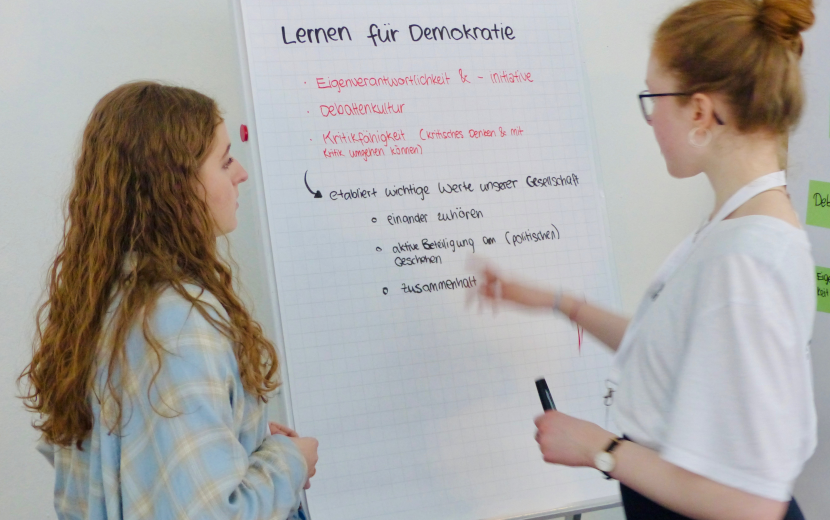 Lernen für Demokratie
· Eigenverantwortlichkeit & - initiative
· Debattenkultur
· Kritikfähigkeit (kritisches Denken & mit
Kritik umgehen können)
etabliert wichtige Werte unserer Gesellschaft
o einander zuhören
o aktive Beteiligung am (politischen)
Geschehen
o Zusammenhalt